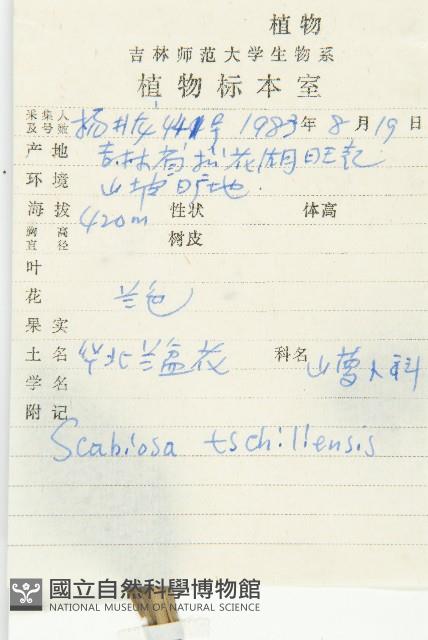 植物
吉林师范大学生物系
植物标本室
采集人及号数 杨井 44号 1983年8月19日
产地 吉林省 花湖
环境 山坡 地
海拔 420m 性状 体高
胸高直径 树皮
叶
花 兰色
果实
土名 华北兰盆花 科名 山萝卜科
学名
附记
Scabiosa tschiliensis
國立自然科學博物館
NATIONAL MUSEUM OF NATURAL SCIENCE